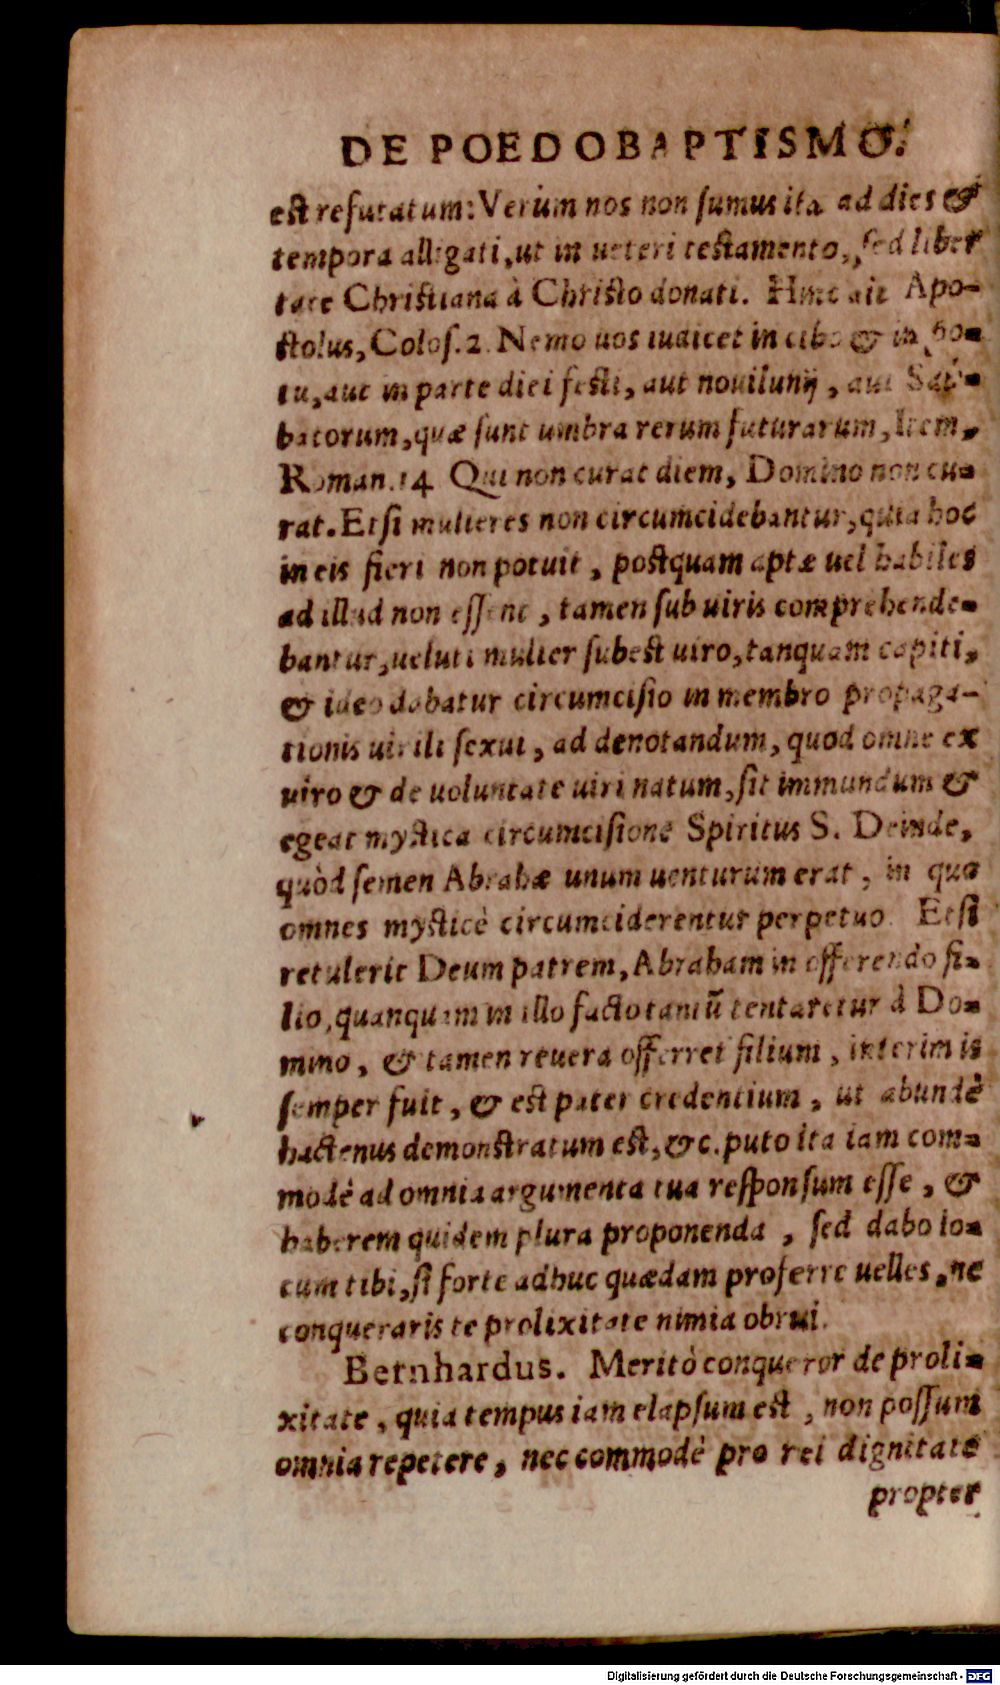 DE POEDOBAPTISMO.
est refutatum: Verùm nos non sumus ita ad dies &
tempora alligati, ut in ueteri testamento, sed liber
tate Christiana à Christo donati. Hinc ait Apo-
stolus, Colos. 2. Nemo uos iudicet in cibo & in po-
tu, aut in parte diei festi, aut nouilunij, aut Sab-
batorum, quæ sunt umbra rerum futurarum, Item,
Roman. 14 Qui non curat diem, Domino non cu-
rat. Etsi mulieres non circumcidebantur, quia hoc
in eis fieri non potuit, postquam aptæ uel habiles
ad illud non essent, tamen sub uiris comprehende-
bantur, ueluti mulier subest uiro, tanquam capiti,
& ideo dabatur circumcisio in membro propaga-
tionis uirili sexui, ad denotandum, quod omne ex
uiro & de uoluntate uiri natum, sit immundum &
egeat mystica circumcisione Spiritus S. Deinde,
quòd semen Abrahæ unum uenturum erat, in quo
omnes mysticè circumciderentur perpetuo. Etsi
retulerit Deum patrem, Abraham in offerendo fi-
lio, quanquam in illo facto tantũ tentaretur à Do-
mino, & tamen reuera offerret filium, interim is
semper fuit, & est pater credentium, ut abundè
hactenus demonstratum est, &c. puto ita iam com-
modè ad omnia argumenta tua responsum esse, &
haberem quidem plura proponenda, sed dabo lo-
cum tibi, si forte adhuc quædam proferre uelles, ne
conqueraris te prolixitate nimia obrui.
Bernhardus. Meritò conqueror de proli-
xitate, quia tempus iam elapsum est, non possum
omnia repetere, nec commodè pro rei dignitate
propter
Digitalisierung gefördert durch die Deutsche Forschungsgemeinschaft - DFG